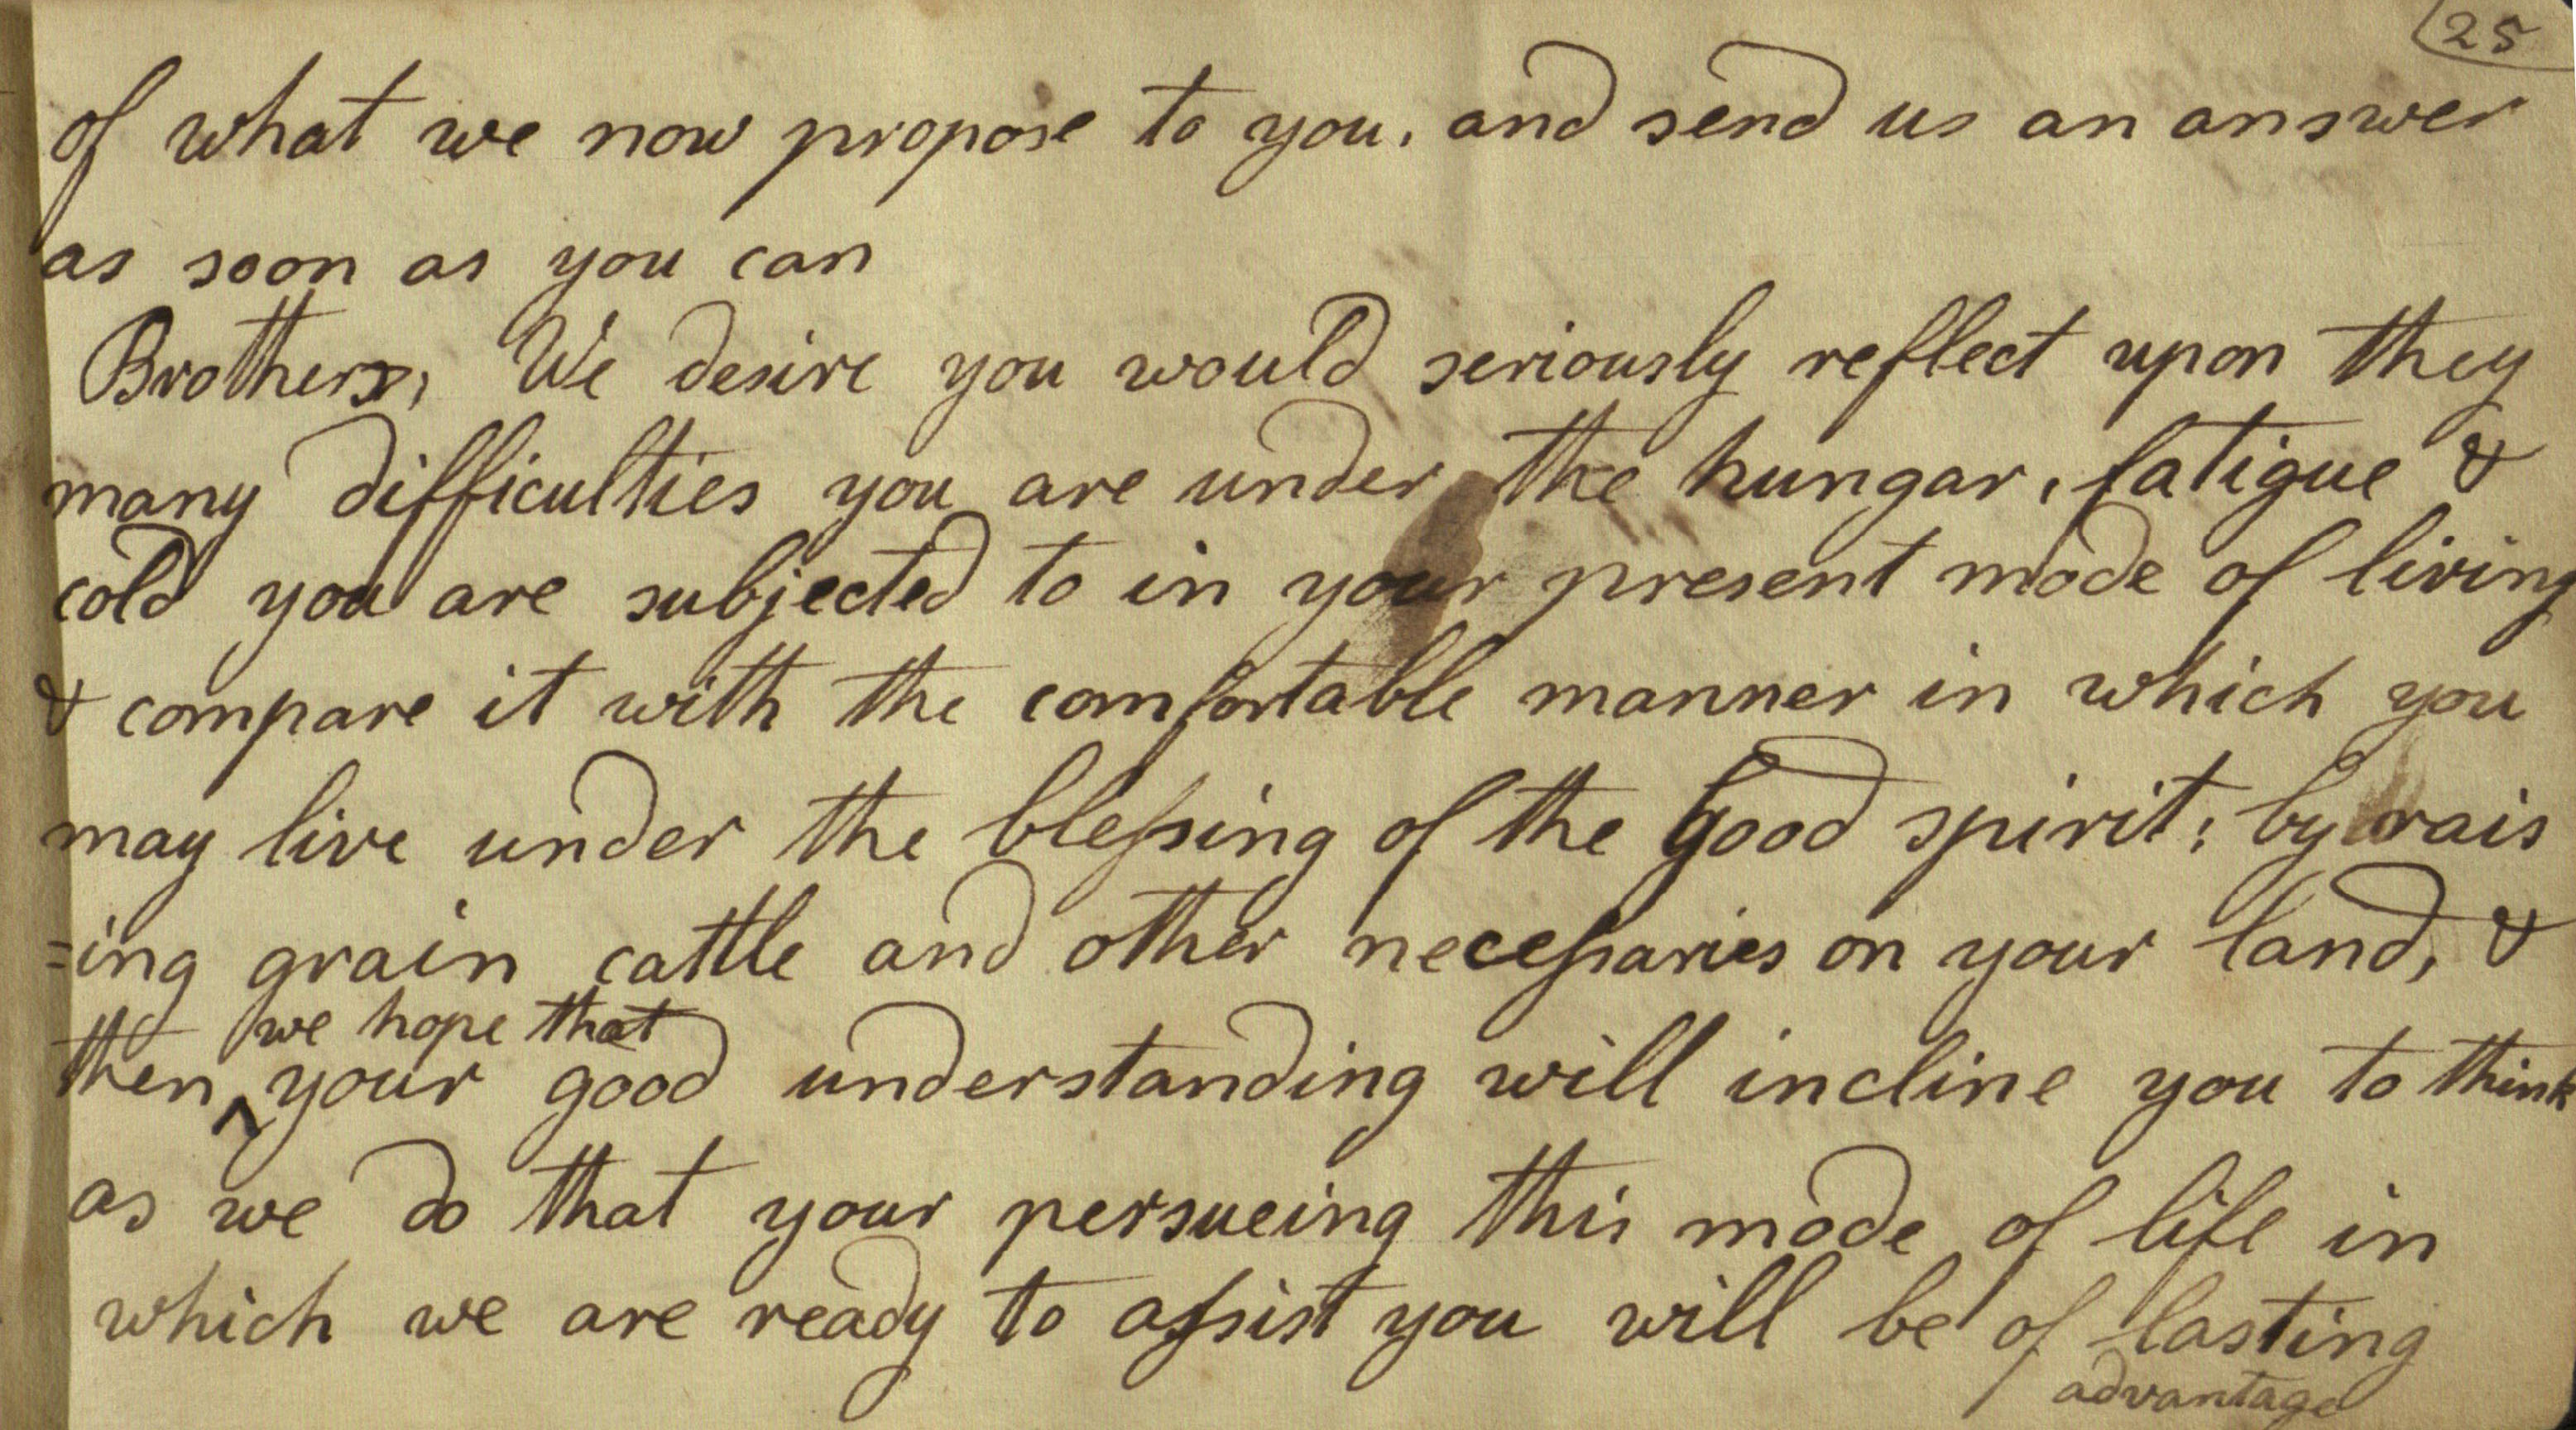 25
of what we now propose to you, and send us an answer
as soon as you can
Brothers, We desire you would seriously reflect upon they
many difficulties you are under the hungar, fatigue &
cold you are subjected to in your present mode of living
& compare it with the comfortable manner in which you
may live under the blessing of the good spirit; by rais
=ing grain cattle and other necessaries on your land, &
we hope that
then ^ your good understanding will incline you to think
as we do that your persueing this mode of life in
which we are ready to assist you will be of lasting
advantage